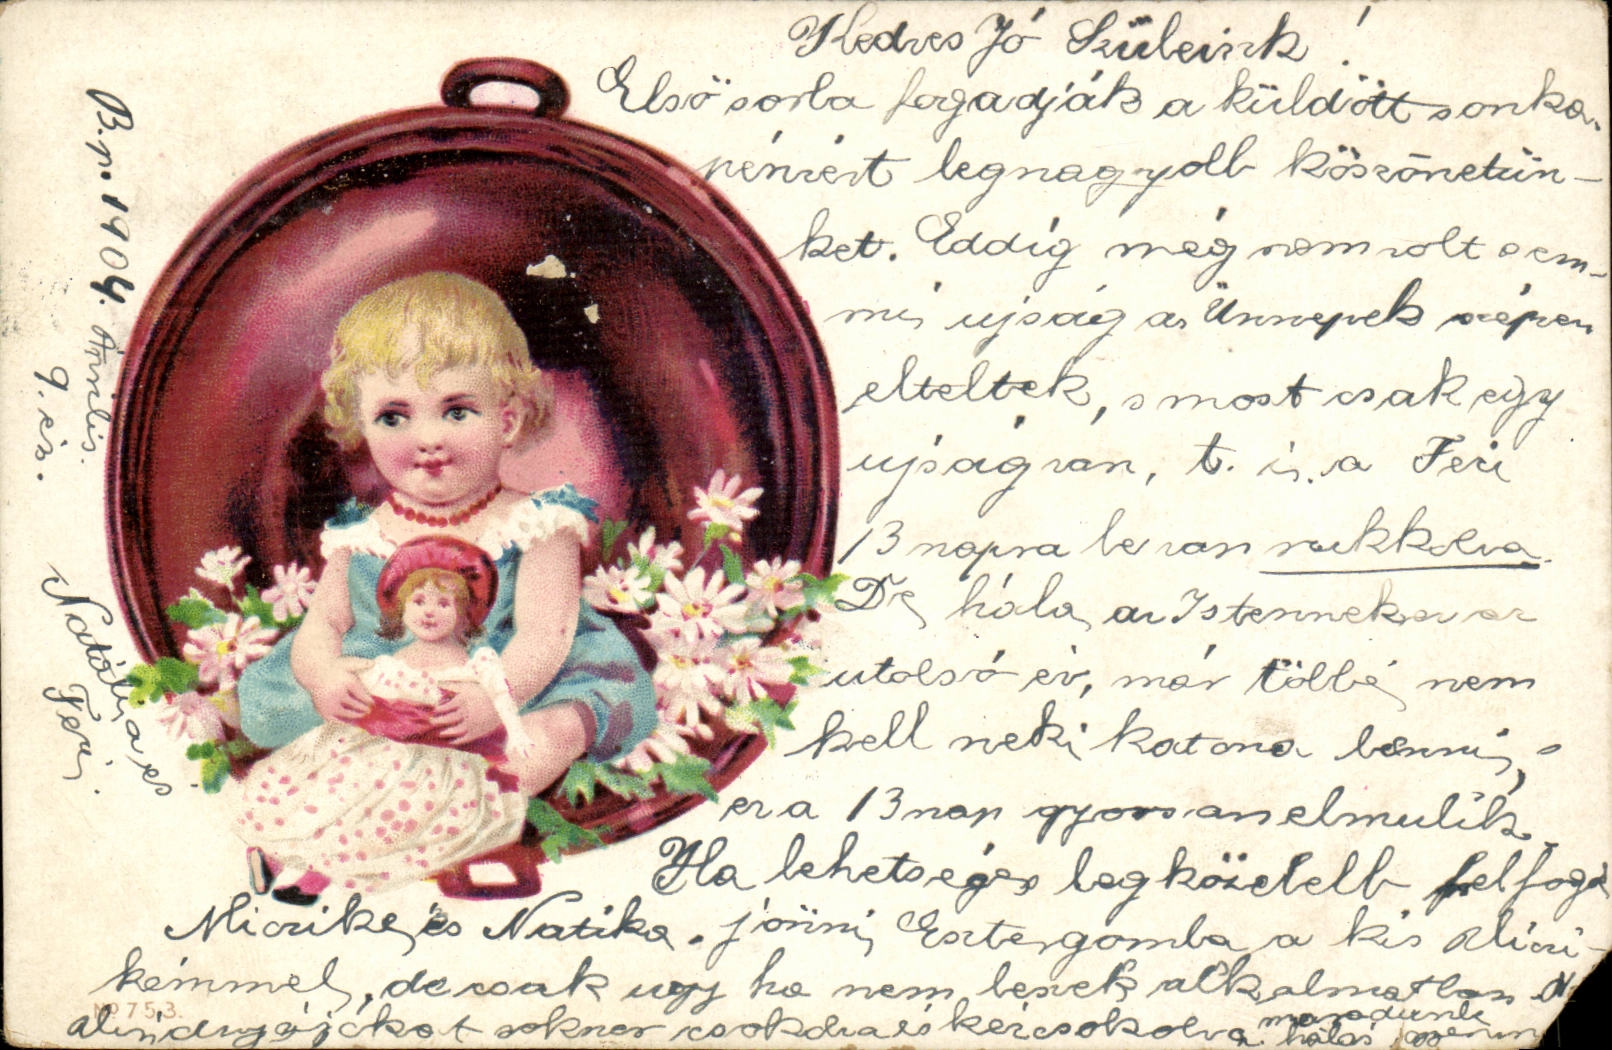 B.p. 1904. Április.
9. én.
Kedves Jó Szüleink!
Első sorba fogadják a küldött sonka
pénzért legnagyobb köszönetün-
ket. Eddig még nem volt sem-
mi ujság az Ünnepek szépen
elteltek, s most csak egy
ujság van, t. i. a Feri
13 napra be van rukkolva.
De hála az Istennek ez az
utolsó év, már többé nem
kell neki katona lenni, s
ez a 13 nap gyorsan elmulik.
Ha lehetséges legközelebb felfog
Miczike és Natika. jönni Esztergomba a kis Miczi-
kémmel, de csak ugy ha nem leszek alkalmatlan
sokszor csokolva maradunk
Natália és
Feri.
No 753.